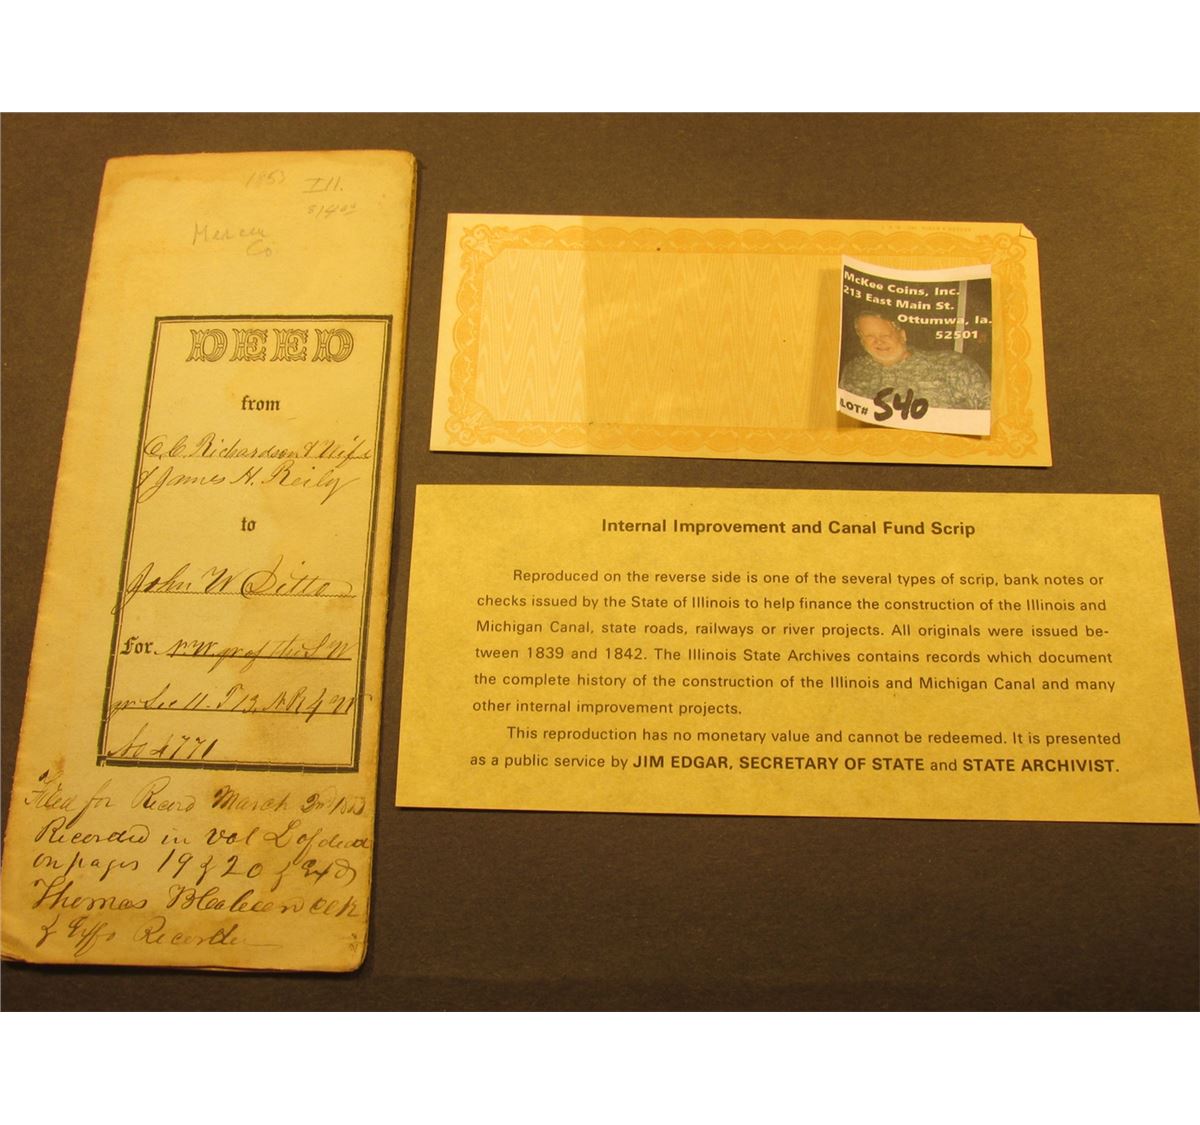 1853 Ill.
Mercer
Co
DEED
from
C. C. Richardson & Wife
& James H. Reily
to
John W Ditto
For. N.W. qr of the S W
qr Sec 11. T 13. N R 4 W
No 4771
Filed for Record March 2nd 1853
Recorded in vol L of deed
on pages 19 & 20
Thomas
Recorder
McKee Coins, Inc.
213 East Main St.
Ottumwa, Ia.
52501
LOT# 540
Internal Improvement and Canal Fund Scrip
Reproduced on the reverse side is one of the several types of scrip, bank notes or
checks issued by the State of Illinois to help finance the construction of the Illinois and
Michigan Canal, state roads, railways or river projects. All originals were issued be-
tween 1839 and 1842. The Illinois State Archives contains records which document
the complete history of the construction of the Illinois and Michigan Canal and many
other internal improvement projects.
This reproduction has no monetary value and cannot be redeemed. It is presented
as a public service by JIM EDGAR, SECRETARY OF STATE and STATE ARCHIVIST.